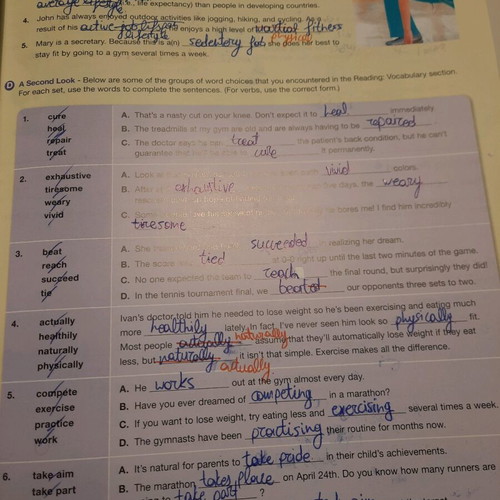 average life expectancy (i.e., life expectancy) than people in developing countries.
4. John has always enjoyed outdoor activities like jogging, hiking, and cycling. As a
result of his active lifestyle, he enjoys a high level of physical fitness
5. Mary is a secretary. Because this is a(n) sedentary job, she does her best to
stay fit by going to a gym several times a week.
D A Second Look - Below are some of the groups of word choices that you encountered in the Reading: Vocabulary section.
For each set, use the words to complete the sentences. (For verbs, use the correct form.)
1. cure
heal
repair
treat
A. That's a nasty cut on your knee. Don't expect it to heal immediately.
B. The treadmills at my gym are old and are always having to be repaired.
C. The doctor says he can treat the patient's back condition, but he can't
guarantee that he'll be able to cure it permanently.
2. exhaustive
tiresome
weary
vivid
A. Look vivid colors.
B. After exhaustive days, the weary
C. bores me! I find him incredibly
tiresome
3. beat
reach
succeed
tie
A. She succeeded realizing her dream.
B. The score tied at 0 right up until the last two minutes of the game.
C. No one expected the team to reach the final round, but surprisingly they did!
D. In the tennis tournament final, we beat our opponents three sets to two.
4. actually
healthily
naturally
physically
Ivan's doctor told him he needed to lose weight so he's been exercising and eating much
more healthily lately. In fact, I've never seen him look so physically fit.
Most people naturally assume that they'll automatically lose weight if they eat
less, but naturally it isn't that simple. Exercise makes all the difference.
actually
5. compete
exercise
practice
work
A. He works out at the gym almost every day.
B. Have you ever dreamed of competing in a marathon?
C. If you want to lose weight, try eating less and exercising several times a week.
D. The gymnasts have been practising their routine for months now.
6. take aim
take part
A. It's natural for parents to take pride in their child's achievements.
B. The marathon takes place on April 24th. Do you know how many runners are
take part ?